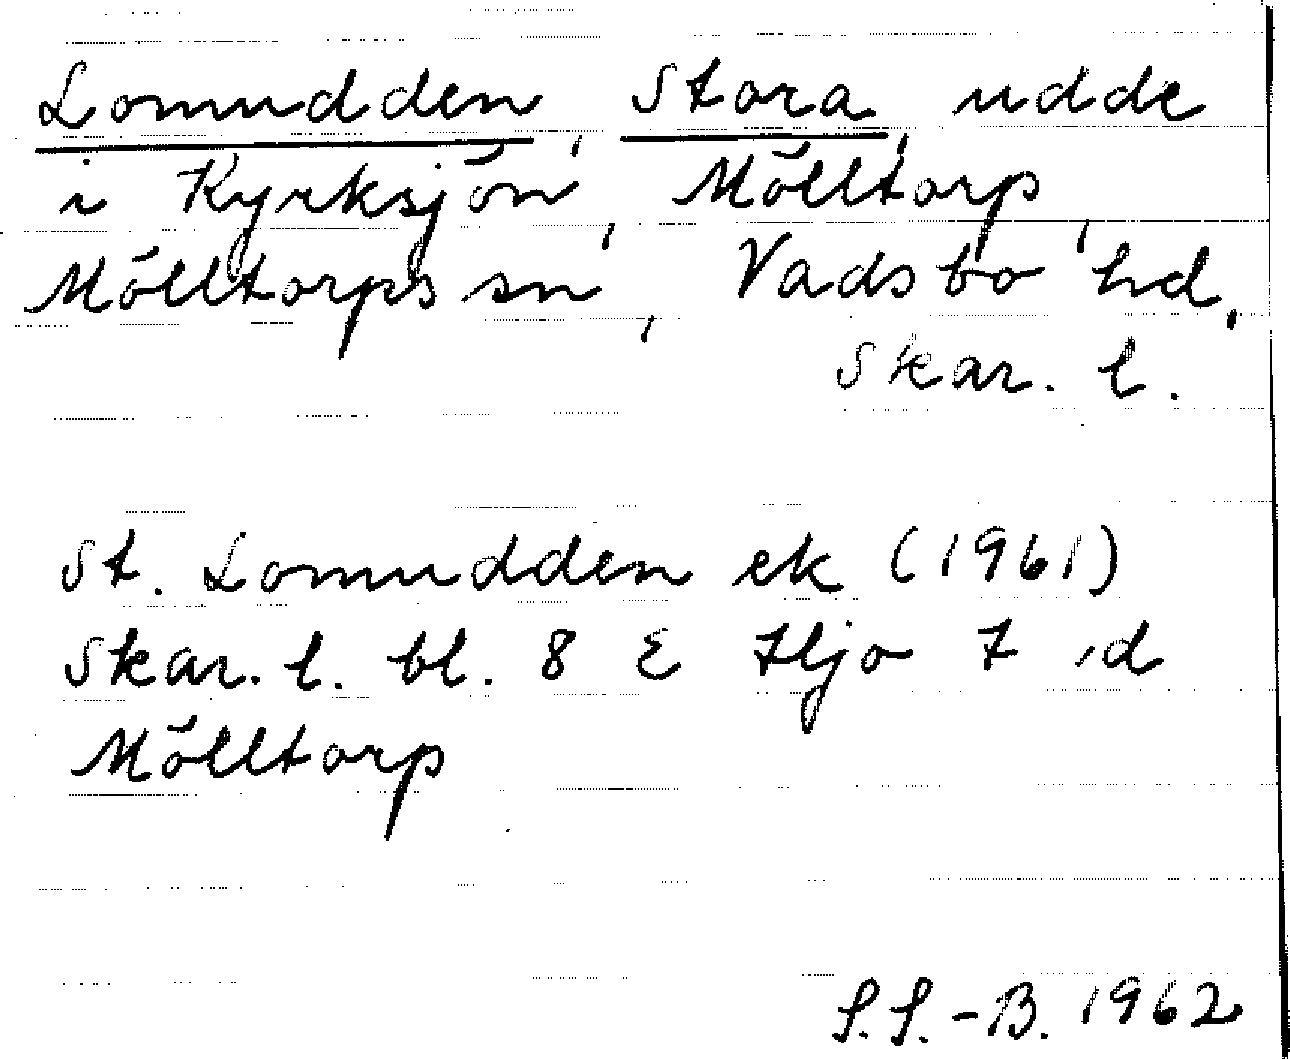 Lomudden, Stora, udde
i Kyrksjön, Mölltorp,
Mölltorps sn, Vadsbo hd,
Skar. l.
St. Lomudden ek (1961)
Skar. l. bl. 8 E Hjo 7 d
Mölltorp
S.S.-B. 1962